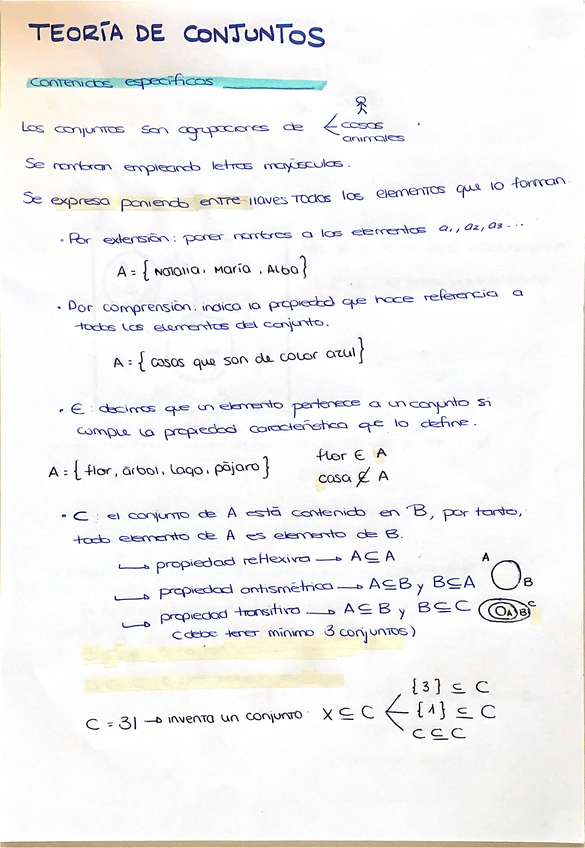 TEORÍA DE CONJUNTOS
contenidos específicos
Los conjuntos son agrupaciones de < cosas
animales
Se nombran empleando letras mayúsculas.
Se expresa poniendo entre llaves todos los elementos que lo forman.
· Por extensión: poner nombres a los elementos a₁, a₂, a₃...
A = { Natalia, María, Alba }
· Por comprensión: indica la propiedad que hace referencia a
todos los elementos del conjunto.
A = { cosas que son de color azul }
· ∈ : decimos que un elemento pertenece a un conjunto si
cumple la propiedad característica que lo define.
A = { flor, árbol, lago, pájaro }
flor ∈ A
casa ∉ A
· ⊂ : el conjunto de A está contenido en B, por tanto,
todo elemento de A es elemento de B.
↳ propiedad reflexiva → A ⊆ A
↳ propiedad antismétrica → A ⊆ B y B ⊆ A
A B
↳ propiedad transitiva → A ⊆ B y B ⊆ C
A B C
(debe tener mínimo 3 conjuntos)
C = 31 → inventa un conjunto X ⊆ C
{3} ⊆ C
{1} ⊆ C
C ⊆ C